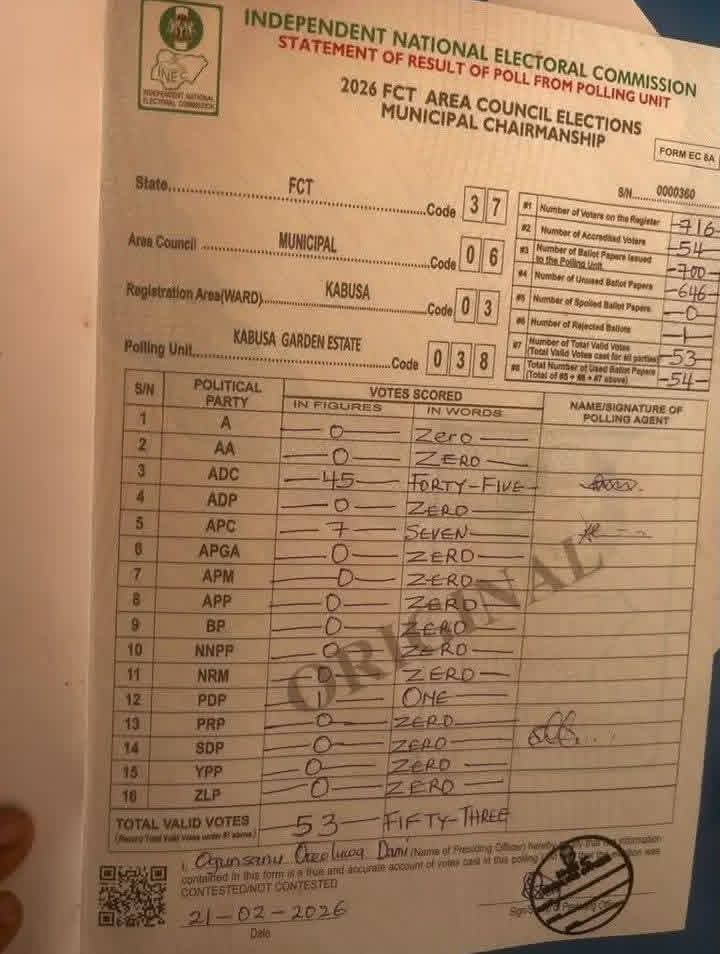 INEC
INDEPENDENT NATIONAL
ELECTORAL COMMISSION
INDEPENDENT NATIONAL ELECTORAL COMMISSION
STATEMENT OF RESULT OF POLL FROM POLLING UNIT
2026 FCT AREA COUNCIL ELECTIONS
MUNICIPAL CHAIRMANSHIP
FORM EC 8A
S/N.......... 0000360
State.......... FCT .......... Code 3 7
Area Council .......... MUNICIPAL .......... Code 0 6
Registration Area(WARD).......... KABUSA .......... Code 0 3
Polling Unit.......... KABUSA GARDEN ESTATE .......... Code 0 3 8
#1 Number of Voters on the Register 716
#2 Number of Accredited Voters 54
#3 Number of Ballot Papers Issued to the Polling Unit 700
#4 Number of Unused Ballot Papers 646
#5 Number of Spoiled Ballot Papers 0
#6 Number of Rejected Ballots 1
#7 Number of Total Valid Votes (Total Valid Votes cast for all parties) 53
#8 Total Number of Used Ballot Papers (Total of #5 + #6 + #7 above) 54
S/N POLITICAL PARTY VOTES SCORED NAME/SIGNATURE OF POLLING AGENT
IN FIGURES IN WORDS
1 A 0 Zero
2 AA 0 ZERO
3 ADC 45 FORTY-FIVE
4 ADP 0 ZERO
5 APC 7 SEVEN
6 APGA 0 ZERO
7 APM 0 ZERO
8 APP 0 ZERO
9 BP 0 ZERO
10 NNPP 0 ZERO
11 NRM 0 ZERO
12 PDP 1 ONE
13 PRP 0 ZERO
14 SDP 0 ZERO
15 YPP 0 ZERO
16 ZLP 0 ZERO
ORIGINAL
TOTAL VALID VOTES 53 FIFTY-THREE
(Record Total Valid Votes under #7 above)
I, Ogunsanu Dami (Name of Presiding Officer) hereby certify that the information
contained in this form is a true and accurate account of votes cast in this polling unit was
CONTESTED/NOT CONTESTED
21-02-2026
Date
Signature of Presiding Officer